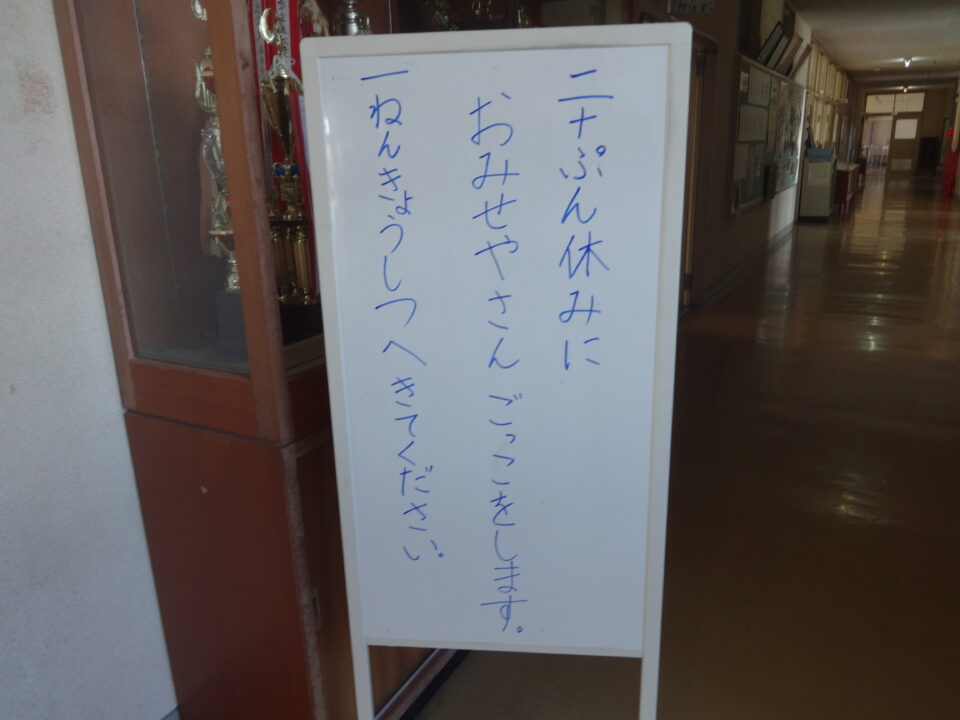 二十ぷん休みに
おみせやさんごっこをします。
一ねんきょうしつへきてください。